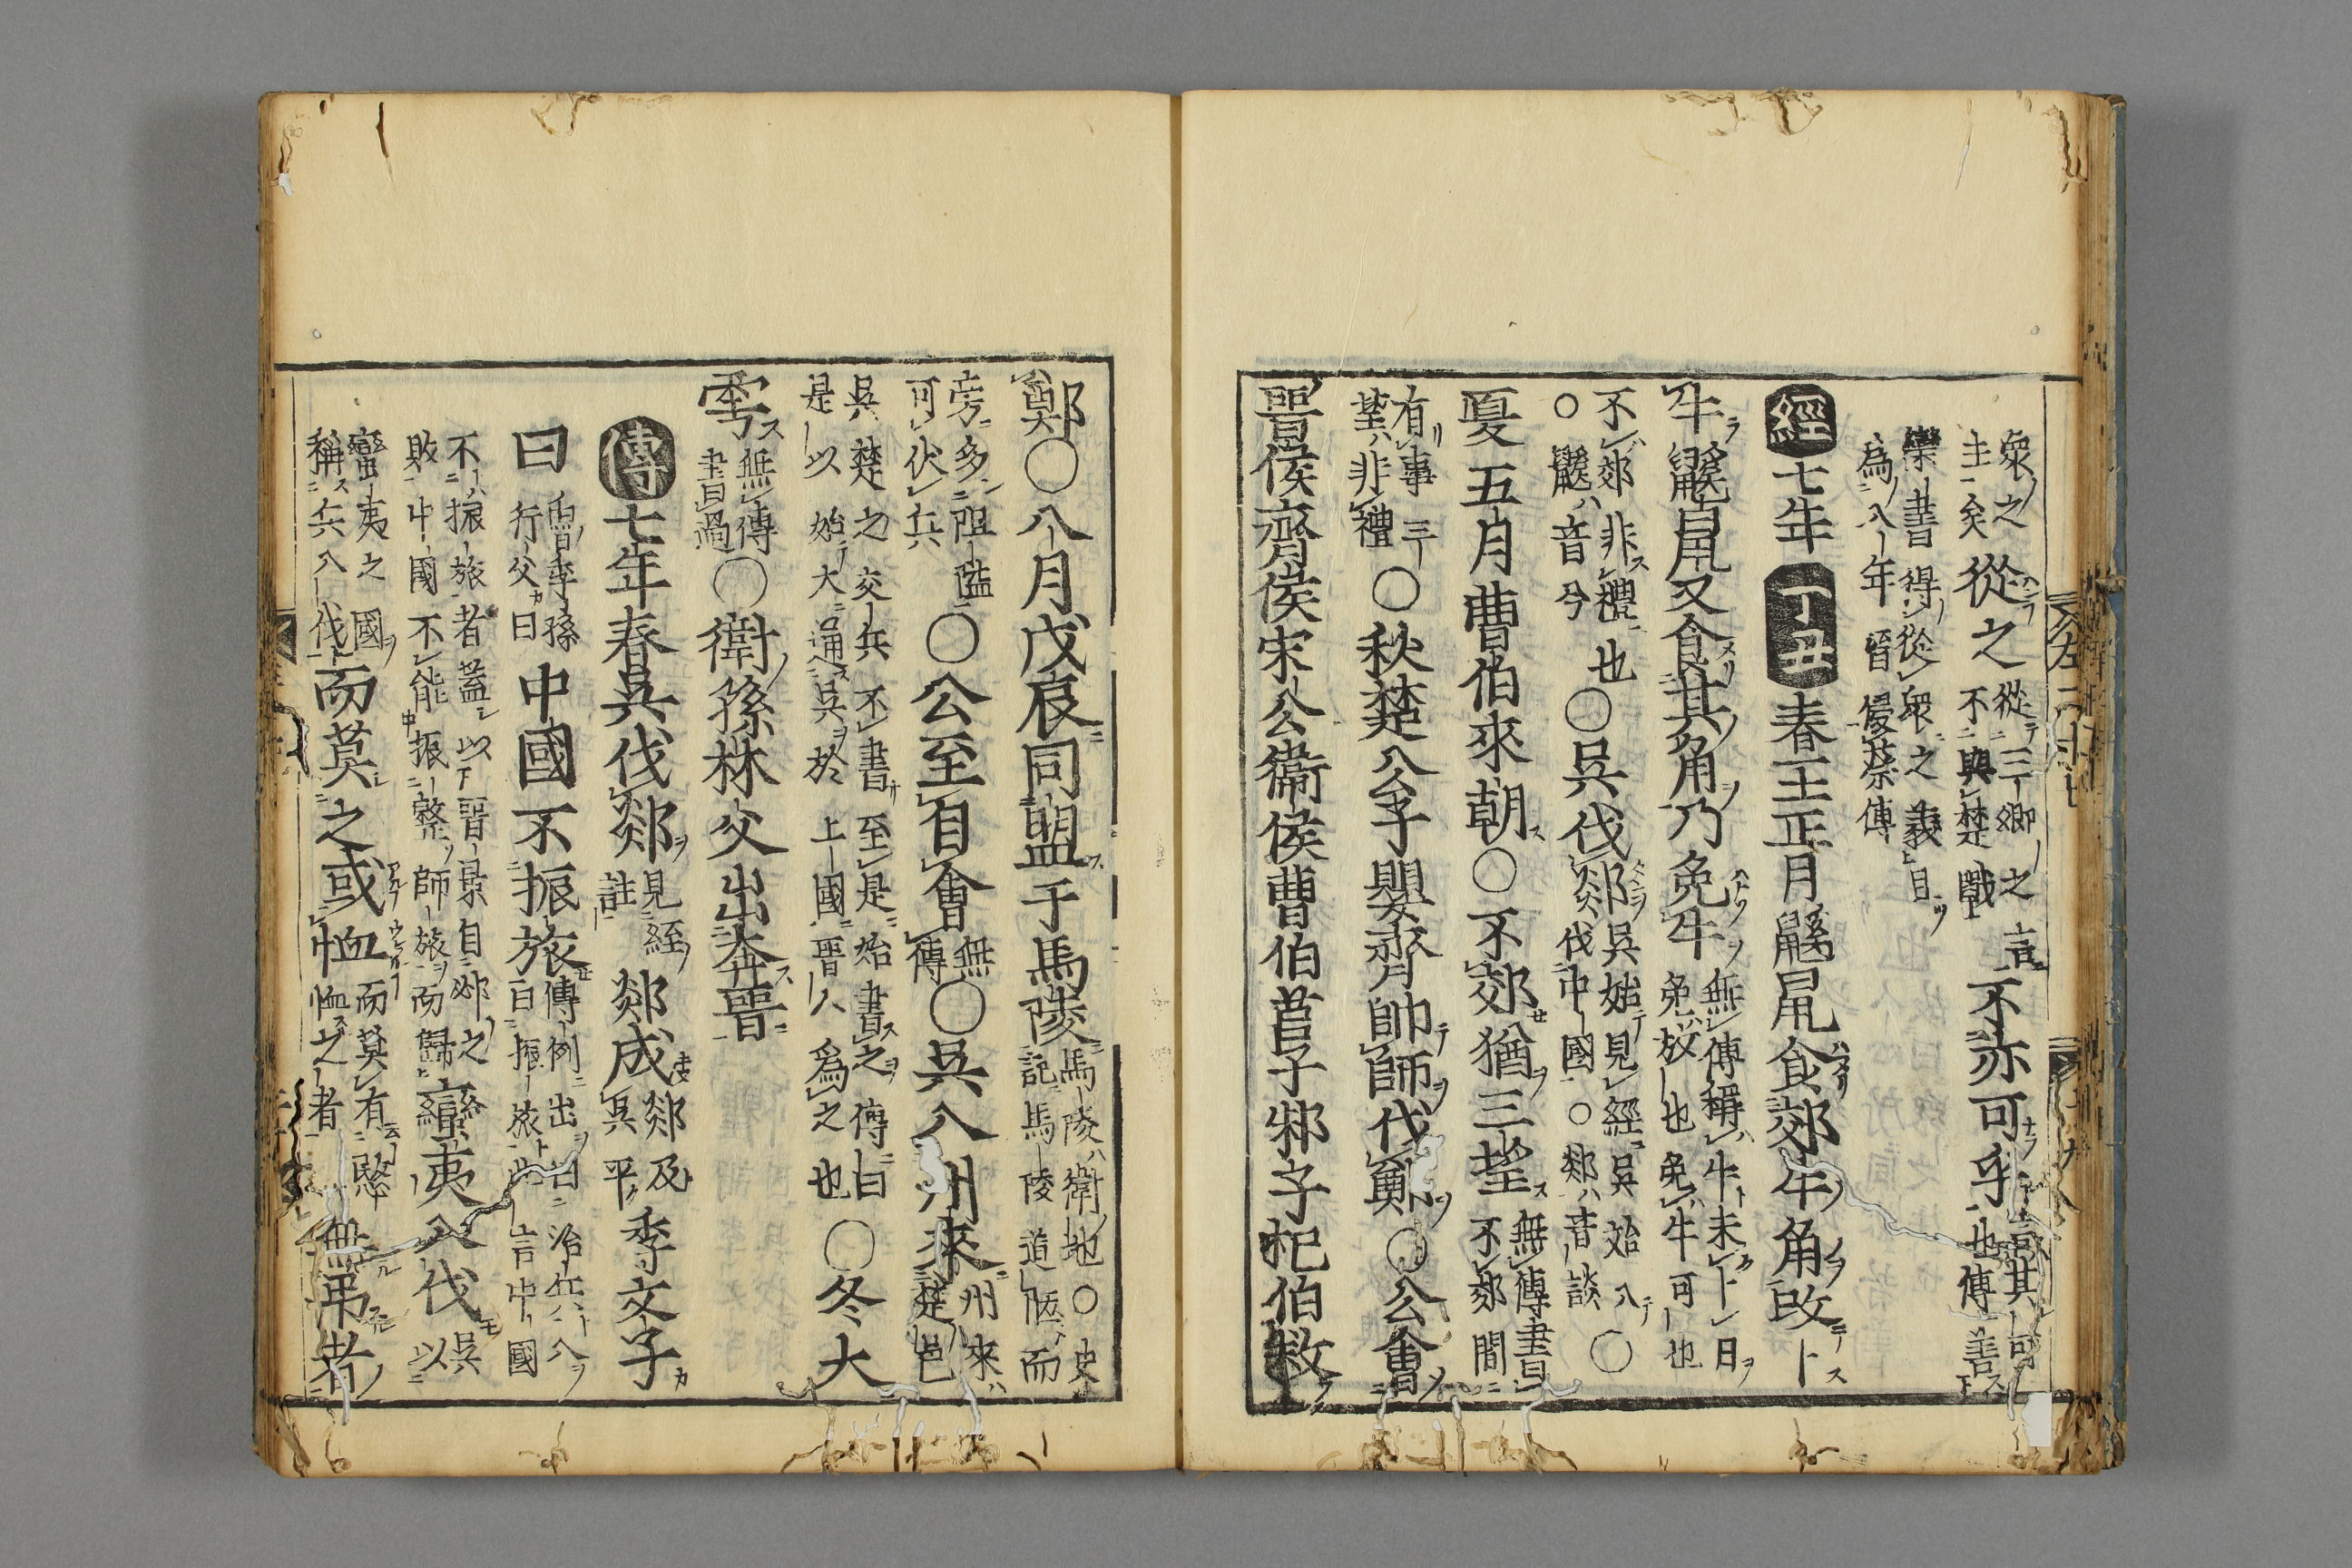 眾之主矣從之從三卿之言不與楚戰不亦可乎言其可也傳善
欒書得從眾之義且為八年晉侵蔡傳
經七年丁丑春王正月鼷鼠食郊牛角改卜
牛鼷鼠又食其角乃免牛無傳稱牛未卜日免放也免牛可也
不郊非禮也○鼷音兮○吳伐郯吳始見經吳始入伐中國○郯音談○
夏五月曹伯來朝○不郊猶三望無傳書不郊間
有事三望非禮○秋楚公子嬰齊帥師伐鄭○公會
晉侯齊侯宋公衞侯曹伯莒子邾子杞伯救
鄭○八月戊辰同盟于馬陵馬陵衛地○史記馬陵道陿而
旁多阻隘可伏兵○公至自會無傳○吳入州來州來楚邑
吳楚之交兵不書至是始書之傳曰是以始大通吳於上國晉人爲之也○冬大
雩無傳書過○衛孫林父出奔晉
傳七年春吳伐郯見經註郯成郯及吳平季文子
曰魯季孫行父曰中國不振旅傳例出曰治兵入曰振旅此言中國
不振旅者蓋以晉景自邲之敗中國不能振整師旅而歸蠻夷入伐吳以
蠻夷之國稱兵入伐而莫之或恤而莫有愍恤之者無弔者